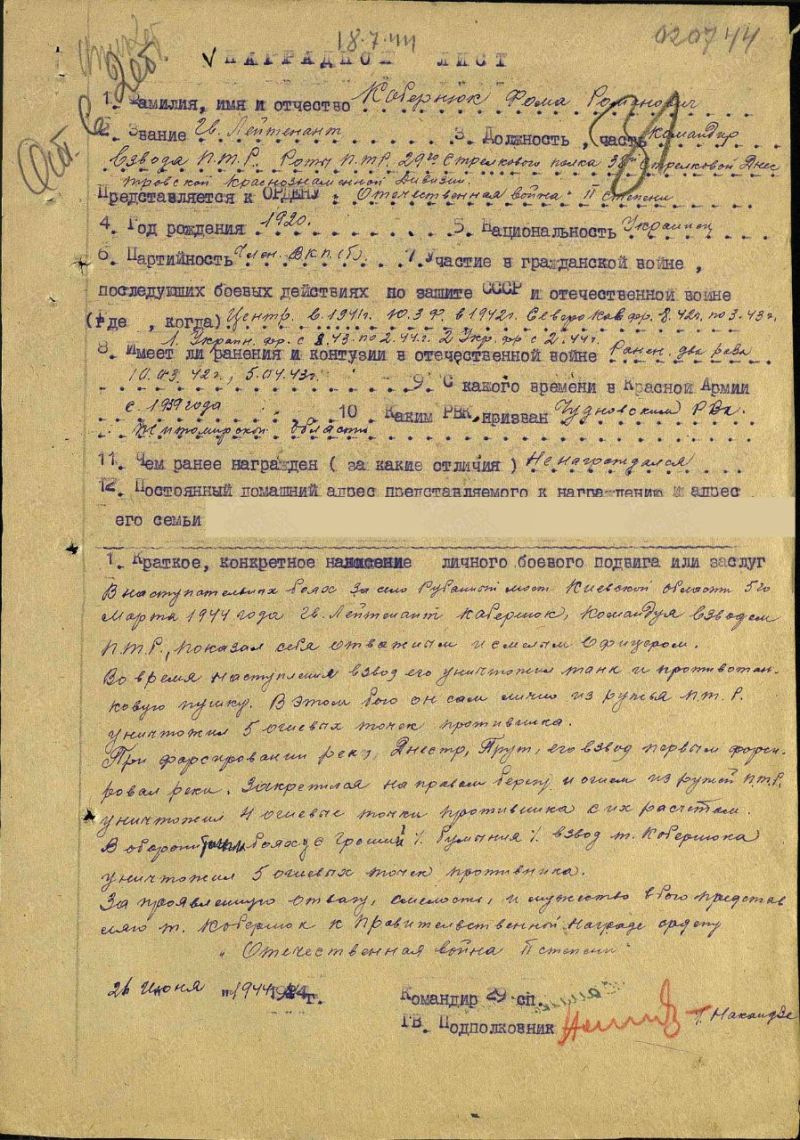 18.7.44
020744
НАГРАДНОЙ ЛИСТ
1. Фамилия, имя и отчество Кобернюк Фома Романович
2. Звание Гв. Лейтенант 3. Должность, часть Командир
Взвода П.Т.Р. Роты П.Т.Р. 29го Стрелкового полка 38й Стрелковой Днес
тровской Краснознаменной Дивизии.
Представляется к ОРДЕНУ: Отечественная война II степени
4. Год рождения 1920. 5. Национальность Украинец
6. Партийность Член. ВКП(б). 7. Участие в гражданской войне,
последующих боевых действиях по защите СССР и отечественной войне
(где, когда) Центр. в 1941г. Ю.З.Ф. в 1942г. Северо Кав фр. 8.42г. по 3.43г.
1. Украин. фр. с 8.43. по 2.44г. 2 Укр. фр с 2.44г.
8. Имеет ли ранения и контузии в отечественной войне Ранен. два раза
10.03.42г., 5.04.43г. 9. С какого времени в Красной Армии
с 1939 года 10 Каким РВК призван Чудновским РВК.
Житомирской области
11. Чем ранее награжден (за какие отличия) Не награждался
12. Постоянный домашний адрес представляемого к награждению и адрес
его семьи
1. Краткое, конкретное изложение личного боевого подвига или заслуг
В наступательных боях за село Рубаный мост Киевской области 5го
Марта 1944 года Гв. Лейтенант Кобернюк, командуя Взводом
П.Т.Р., показал себя отважным и смелым Офицером.
Во время наступления взвод его уничтожил танк и противотан-
ковую пушку. В этом бою он сам лично из ружья П.Т.Р.
уничтожил 5 огневых точек противника.
При форсировании реки, Днестр, Прут, его взвод первым форси-
ровал реки. Закрепился на правом берегу и огнем из ружей П.Т.Р.
уничтожил 4 огневые точки противника с их расчетом.
В оборонительных боях у с Грошии /. Румыния /. взвод т. Кобернюка
уничтожил 5 огневых точек противника.
За проявленную отвагу, смелость, и мужество в бою представ
ляю т. Кобернюк к Правительственной Награде ордену
„Отечественная война II степени"
26 Июня 1944 г. Командир 29 сп.
Гв. Подполковник